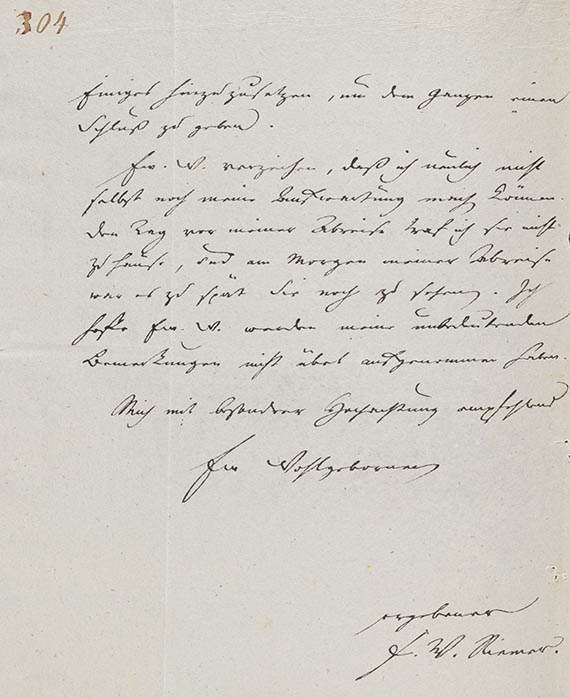 304
Einiges hinzuzusetzen, um dem Ganzen einen
Schluß zu geben.
Ew. W. verzeihen, daß ich neulich nicht
selbst noch meine Aufwartung mach können.
Den Tag vor meiner Abreise traf ich sie nicht
zu Hause, und am Morgen meiner Abreise
war es zu spät Sie noch zu sehen. Ich
hoffe Ew. W. werden meine unbedeutenden
Bemerkungen nicht übel aufgenommen haben.
Mich mit besondrer Hochachtung empfehlend
Ew Wohlgebornen
ergebener
F. W. Riemer.